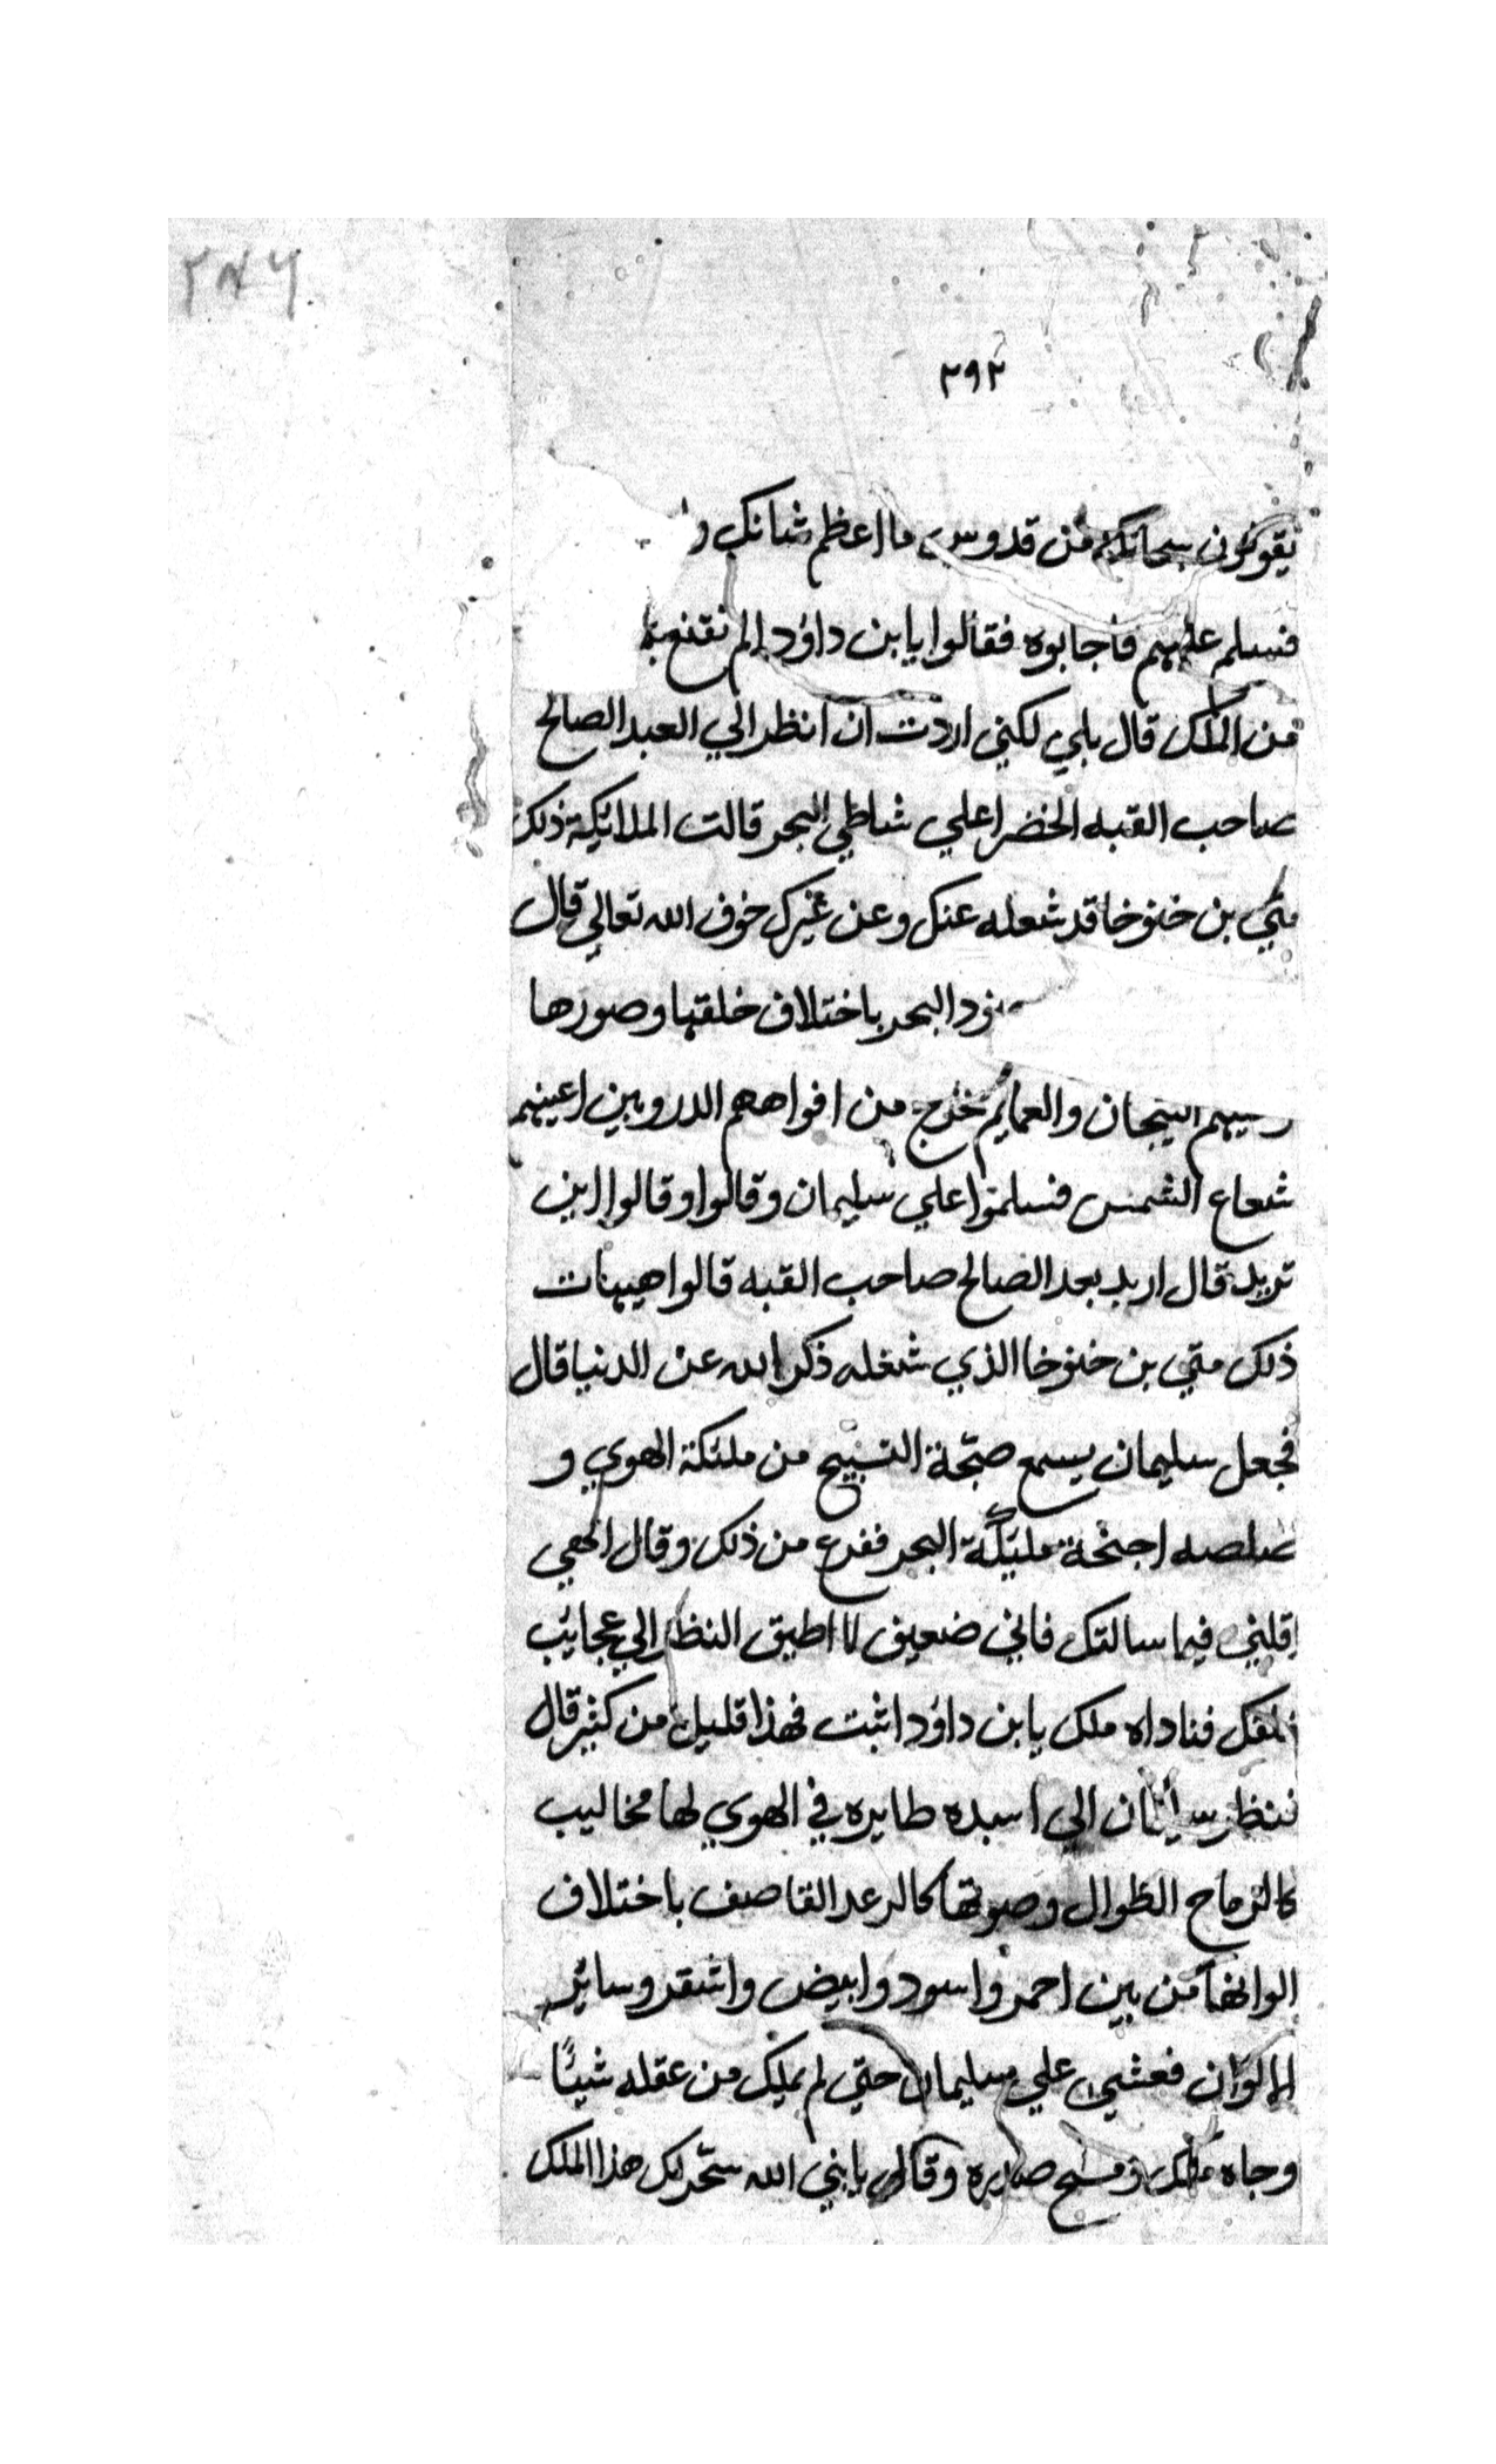 ٢٨٦
٢٩٢
يقولون سبحانك من قدوس ما اعظم شانك و
فسلم عليهم فاجابوه فقالوا يا بن داوُد الم تقنع
من الملك قال بلي لكني اردت ان انظر الي العبد الصالح
صاحب القبه الخضرا علي شاطي البحر قالت الملائيكة ذلك
متي بن خنوخا قد شعله عنك وعن غيرك خوف الله تعالي قال
البحر باختلاف خلقتها وصورها
التيجان والعمايم تخرج من افواههم الدر وبين اعينهم
شعاع الشمس فسلموا علي سليمان وقالوا وقالوا اين
تريد قال اريد بعد الصالح صاحب القبه قالوا هيهات
ذلك متي بن خنوخا الذي شغله ذكر الله عن الدنيا قال
فجعل سليمان يسمع صبّحة التسبيح من ملئكة الهوي و
صلصه اجنحة مليئكة البحر ففزع من ذلك وقال الهي
اقلني فيما سالتك فاني ضعيف لا اطيق النظر الي عجايئب
خلقك فناداه ملك يا بن داوُد اثبت فهذا قليل من كثير قال
فنظر سليمان الي اسبده طايره في الهوي لها مخاليب
كالرماح الطوال وصوتها كالرعد القاصف باختلاف
الوانها من بين احمر واسود وابيض واشقر وسائر
الالوان فعشي علي سليمان حتي لم يملك من عقله شيئًا
وجاه ملك ومسح صدره وقال يا نبي الله سخّر لك هذا الملك